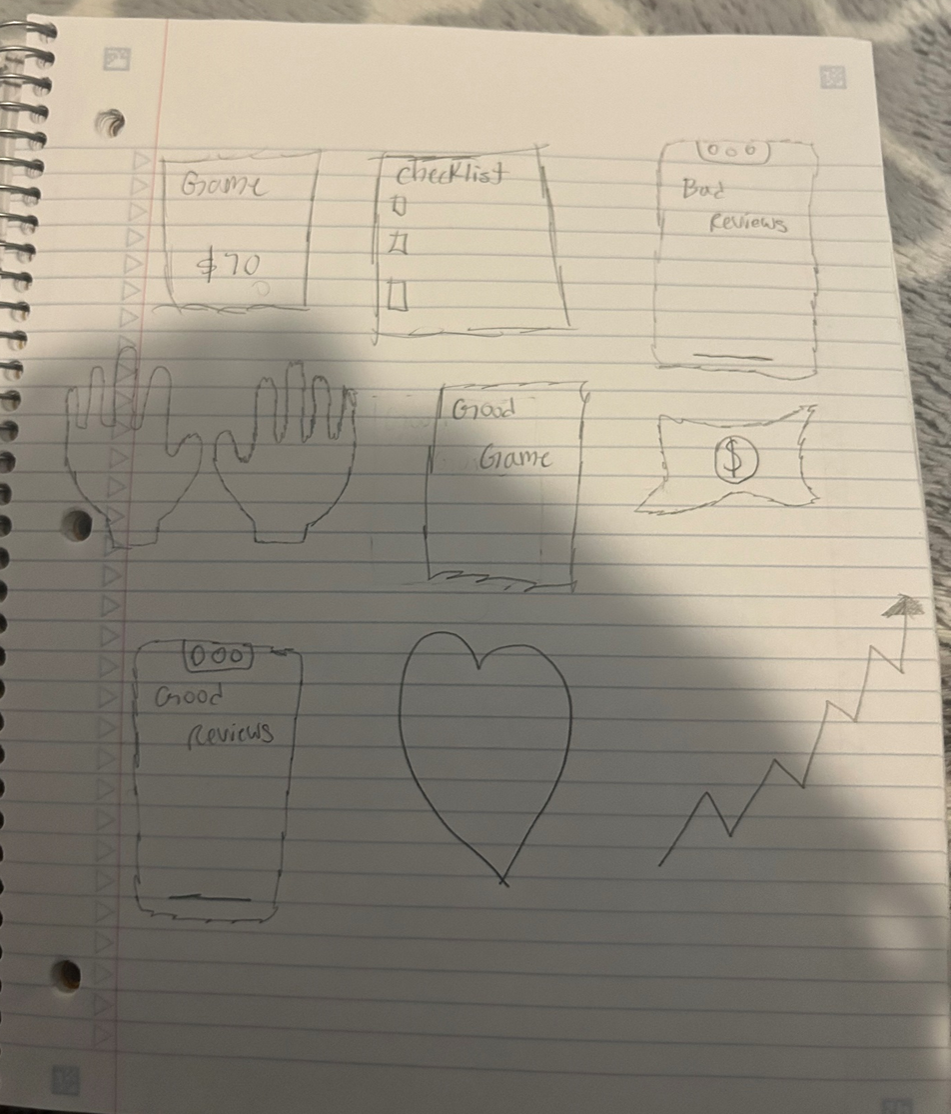 Game
$70
Checklist
Bad
Reviews
Good
Game
$
Good
Reviews